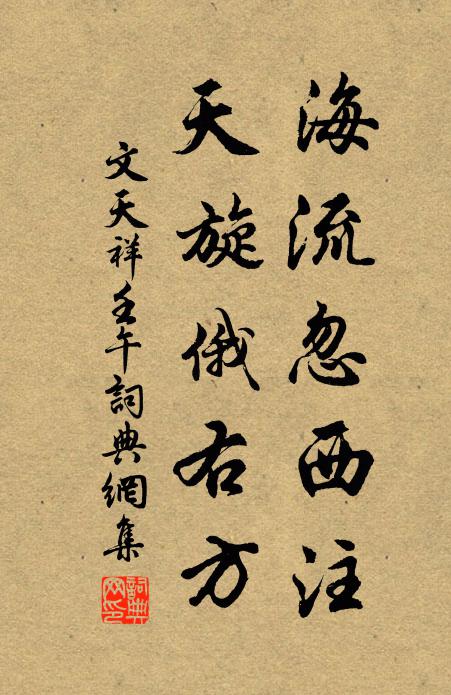 海流忽西注
天旋俄右方
文天祥壬午詞典網集
詞典網印